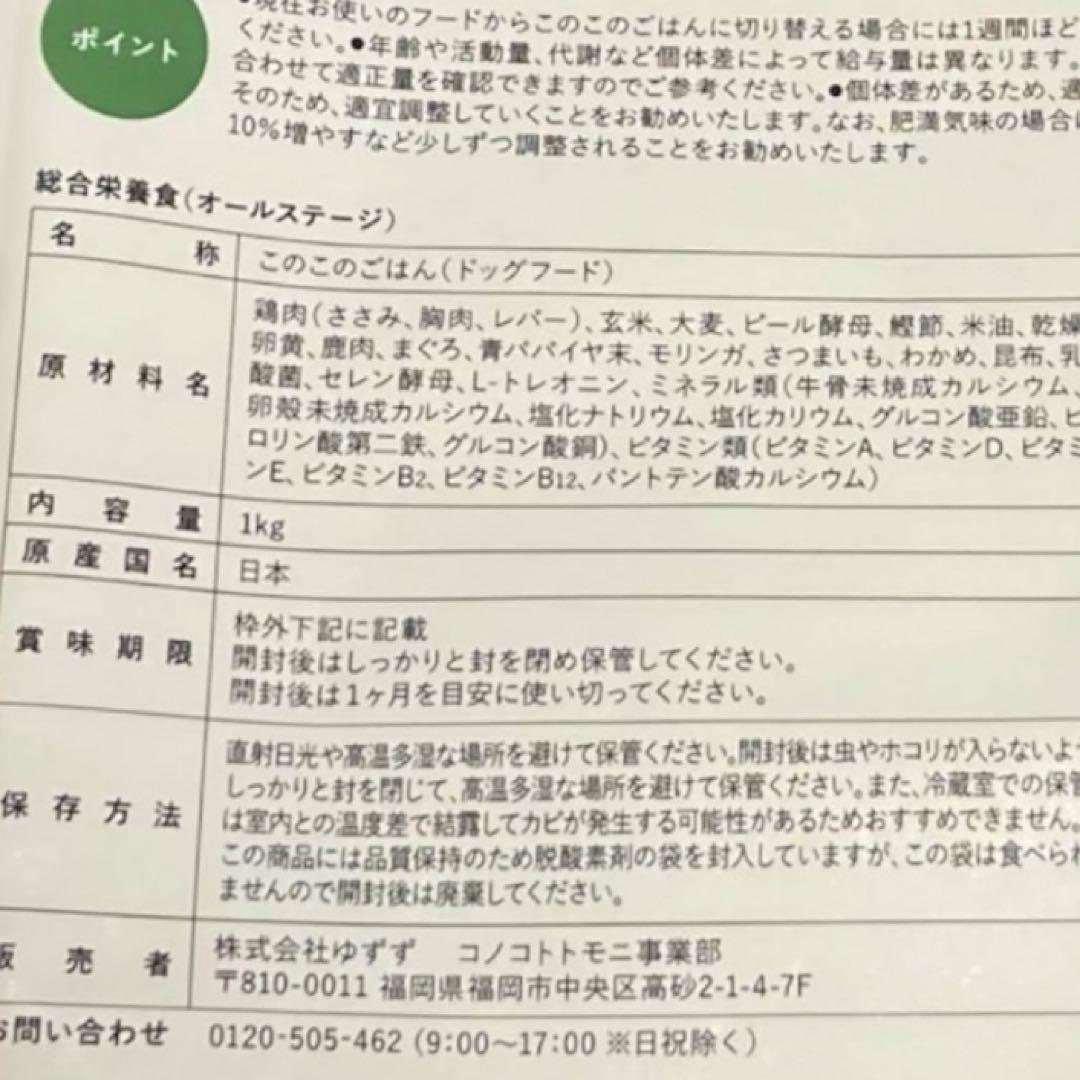 ポイント
●現在お使いのフードからこのこのごはんに切り替える場合には1週間ほど
ください。●年齢や活動量、代謝など個体差によって給与量は異なります。
合わせて適正量を確認できますのでご参考ください。●個体差があるため、適
そのため、適宜調整していくことをお勧めいたします。なお、肥満気味の場合に
10%増やすなど少しずつ調整されることをお勧めいたします。
総合栄養食(オールステージ)
名称 このこのごはん(ドッグフード)
原材料名 鶏肉(ささみ、胸肉、レバー)、玄米、大麦、ビール酵母、鰹節、米油、乾燥
卵黄、鹿肉、まぐろ、青パパイヤ末、モリンガ、さつまいも、わかめ、昆布、乳
酸菌、セレン酵母、L-トレオニン、ミネラル類(牛骨未焼成カルシウム、
卵殻未焼成カルシウム、塩化ナトリウム、塩化カリウム、グルコン酸亜鉛、ピ
ロリン酸第二鉄、グルコン酸銅)、ビタミン類(ビタミンA、ビタミンD、ビタミ
ンE、ビタミンB2、ビタミンB12、パントテン酸カルシウム)
内容量 1kg
原産国名 日本
賞味期限 枠外下記に記載
開封後はしっかりと封を閉め保管してください。
開封後は1ヶ月を目安に使い切ってください。
保存方法 直射日光や高温多湿な場所を避けて保管ください。開封後は虫やホコリが入らないよう
しっかりと封を閉じて、高温多湿な場所を避けて保管ください。また、冷蔵室での保管
は室内との温度差で結露してカビが発生する可能性があるためおすすめできません。
この商品には品質保持のため脱酸素剤の袋を封入していますが、この袋は食べられ
ませんので開封後は廃棄してください。
販売者 株式会社ゆずず コノコトトモニ事業部
〒810-0011 福岡県福岡市中央区高砂2-1-4-7F
お問い合わせ 0120-505-462 (9:00〜17:00 ※日祝除く)